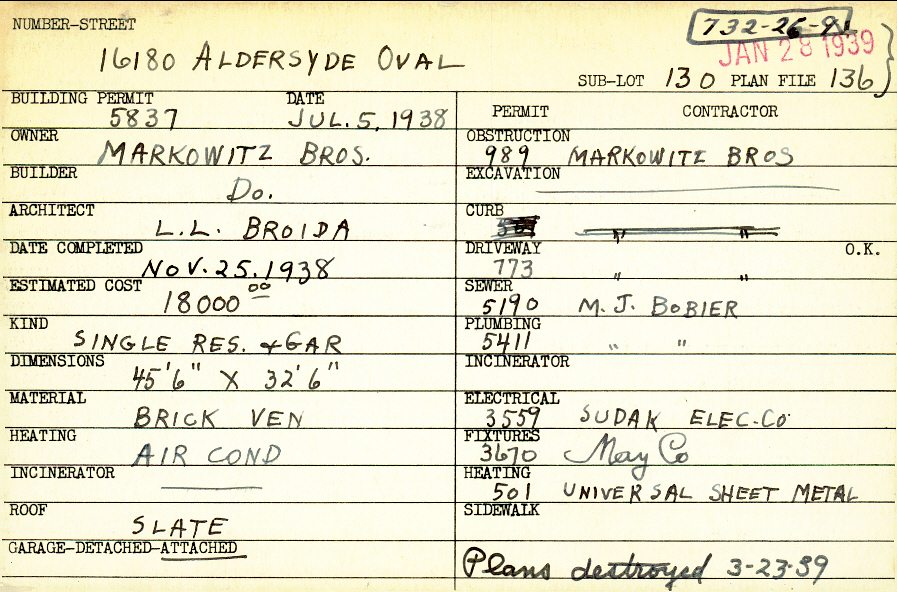 NUMBER-STREET
732-26-91
JAN 28 1939
16180 ALDERSYDE OVAL
SUB-LOT 130 PLAN FILE 136
BUILDING PERMIT DATE
5837 JUL. 5, 1938
OWNER
MARKOWITZ BROS.
BUILDER
Do.
ARCHITECT
L.L. BROIDA
DATE COMPLETED
NOV. 25. 1938
ESTIMATED COST
18000 00
KIND
SINGLE RES. & GAR
DIMENSIONS
45'6" X 32'6"
MATERIAL
BRICK VEN
HEATING
AIR COND
INCINERATOR
ROOF
SLATE
GARAGE-DETACHED-ATTACHED
PERMIT CONTRACTOR
OBSTRUCTION
989 MARKOWITZ BROS
EXCAVATION
CURB
" "
DRIVEWAY O.K.
773 " "
SEWER
5190 M. J. BOBIER
PLUMBING
5411 " "
INCINERATOR
ELECTRICAL
3559 SUDAK ELEC. CO.
FIXTURES
3670 May Co
HEATING
501 UNIVERSAL SHEET METAL
SIDEWALK
Plans destroyed 3-23-39